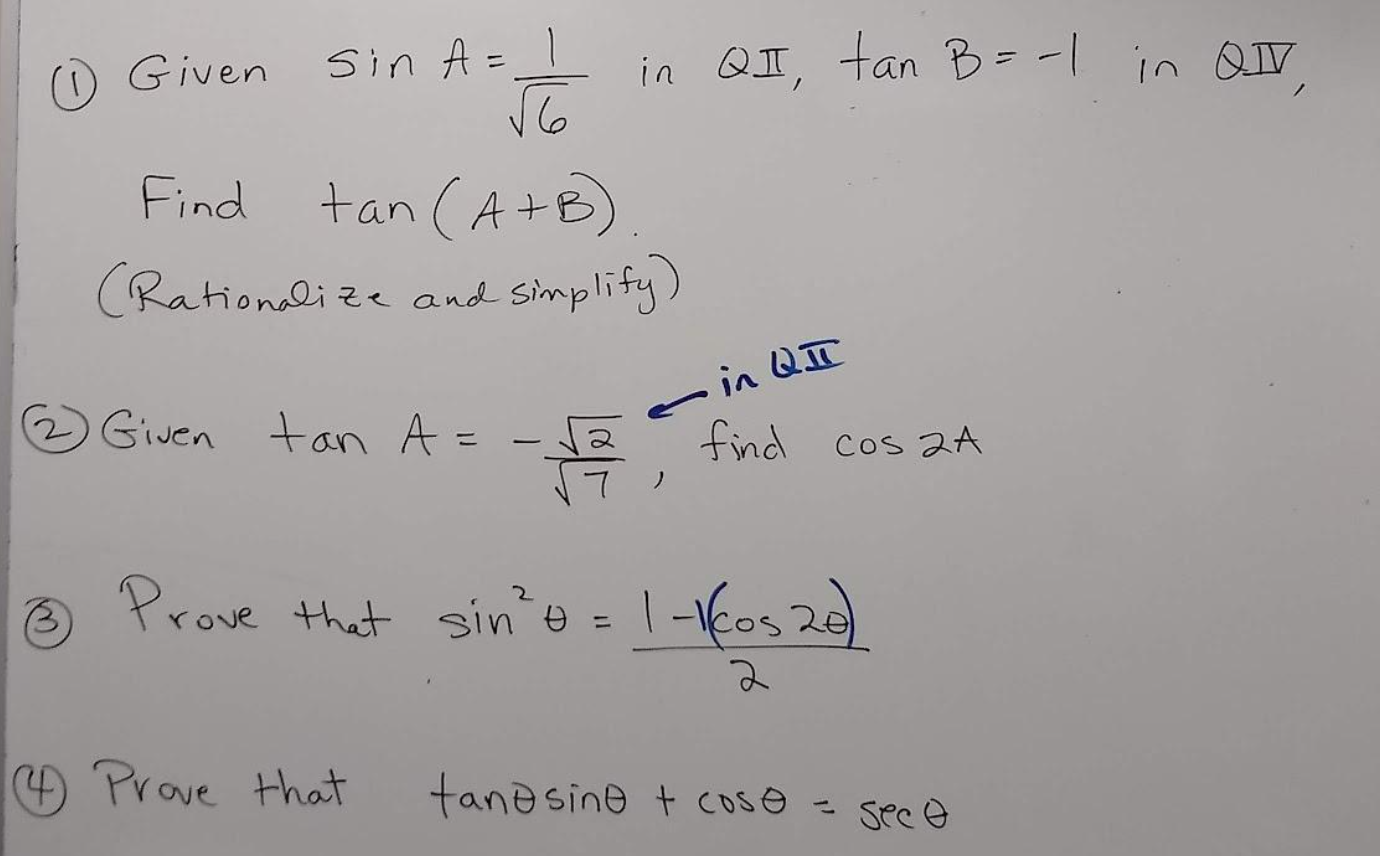 ① Given sin A = 1/√6 in QII, tan B = -1 in QIV,
Find tan (A+B).
(Rationalize and simplify)
in QII
② Given tan A = -√2/√7, find cos 2A
③ Prove that sin²θ = 1-1(cos 2θ)/2
④ Prove that tanθsinθ + cosθ = secθ